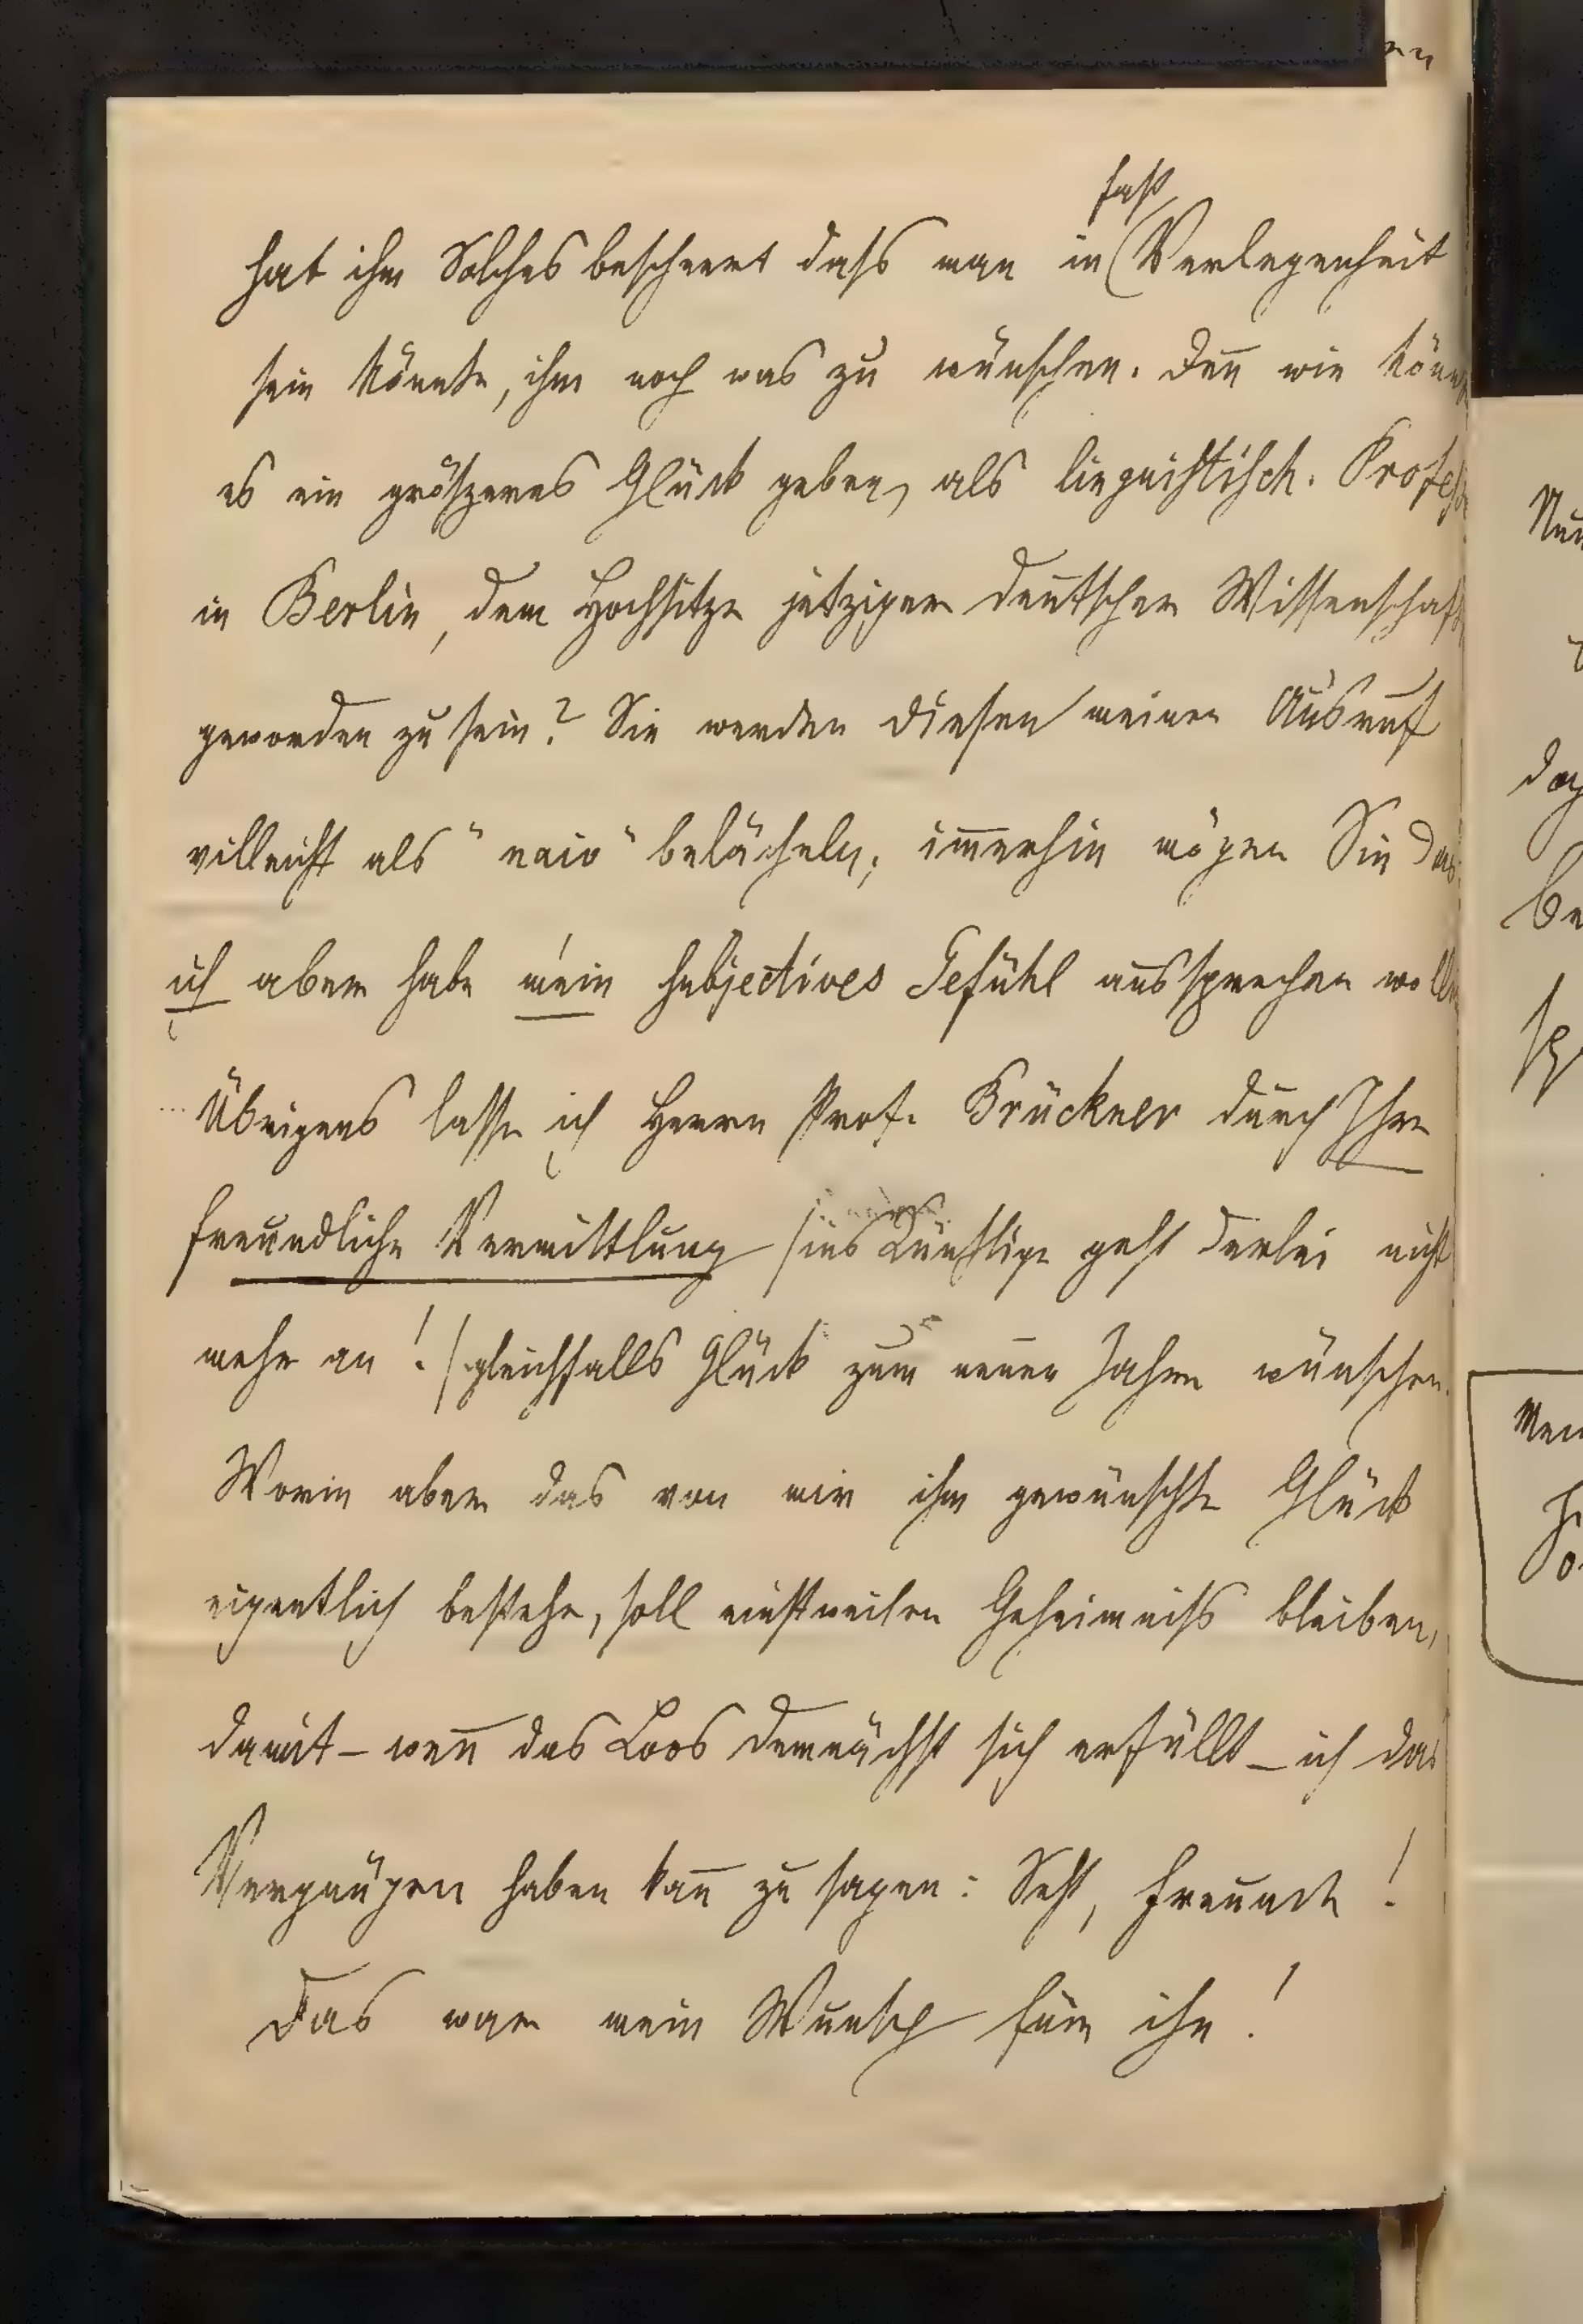 fast
hat ihm Solches bescheert dass man in Verlegenheit
sein könnte, ihm noch was zu wünschen. Deñ wie könnte
es ein grösseres Glück geben, als linguistisch. Profess
in Berlin, dem Hochsitze jetziger deutscher Wissenschaft
geworden zu sein? Sie werden diesen meinen Ausruf
villeicht als "naiv" belächeln; im̄erhin mögen Sie das
ich aber habe mein subjectives Gefühl aussprechen wollen
Übrigens lasse ich Herrn Prof. Brückner durch Ihre
freundliche Vermittlung (ins Künftige geht derlei nicht
mehr an!) gleichfalls Glück zum neuen Jahre wünschen.
Worin aber das von mir ihm gewünschte Glück
eigentlich bestehe, soll einstweilen Geheimniss bleiben,
damit – weñ das Loos demnächst sich erfüllt – ich das
Vergnügen haben kañ zu sagen: Seht, Freunde!
Das war mein Wunsch für ihn!